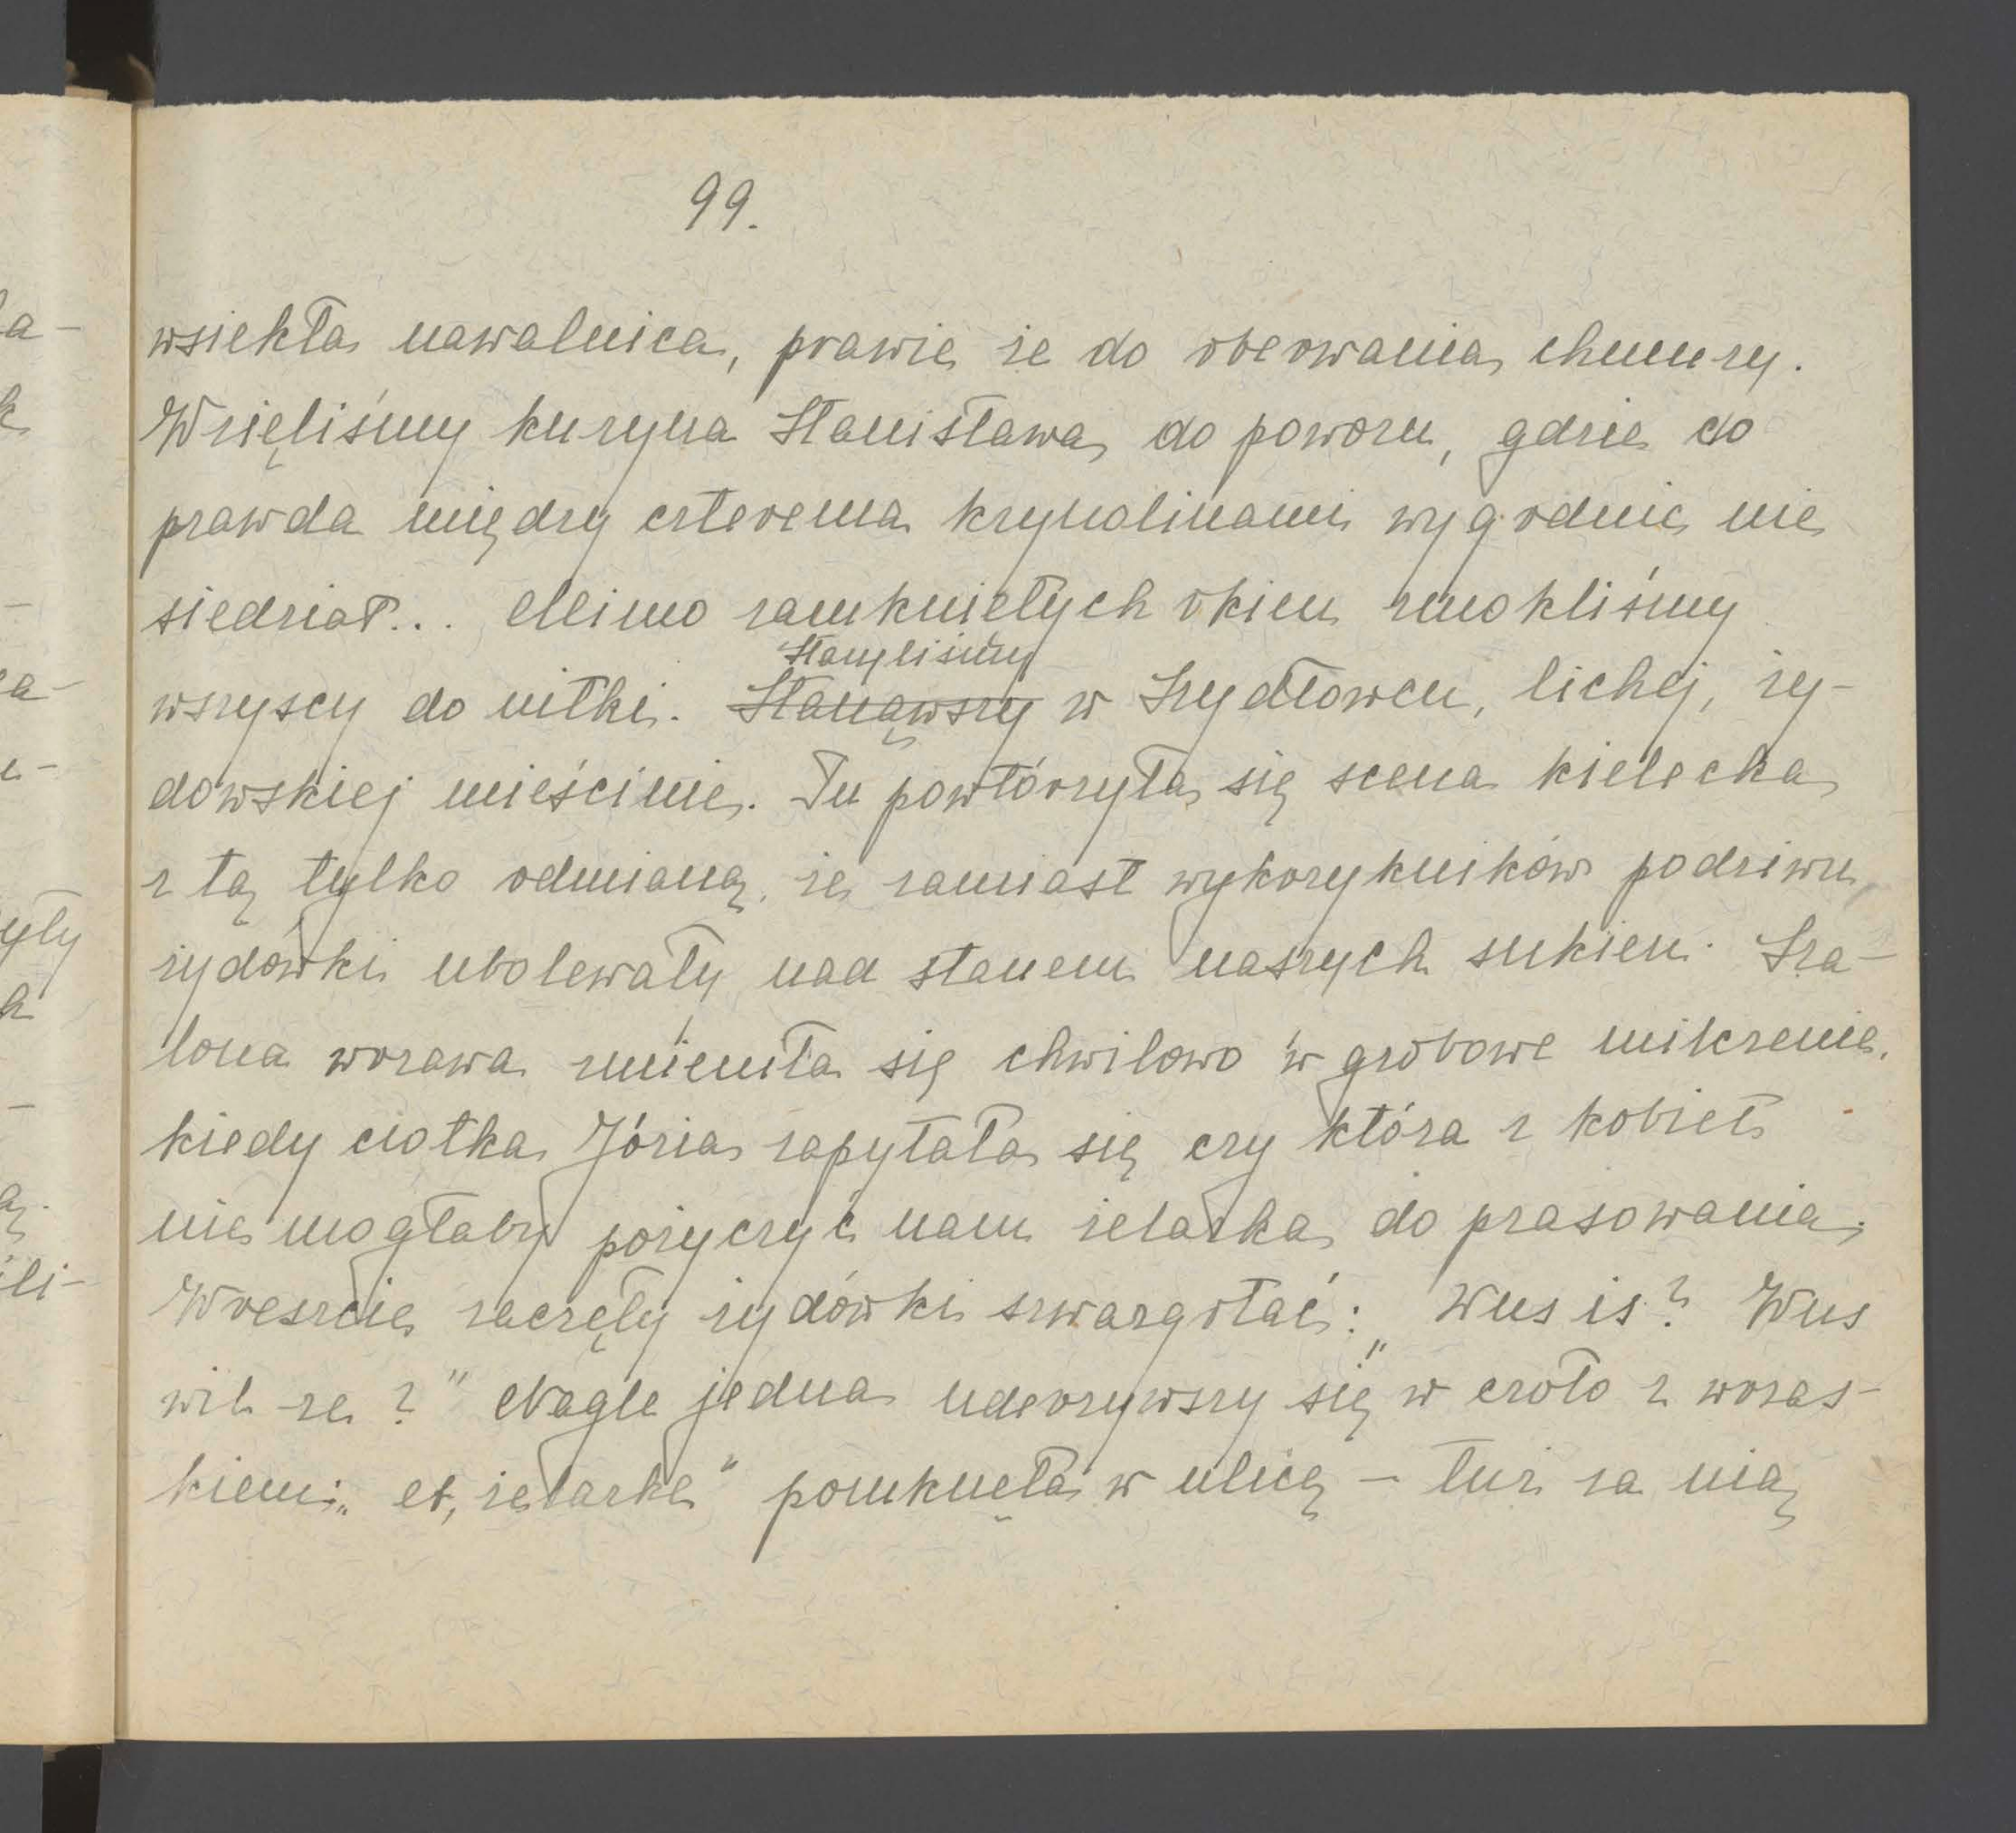 99.
wsiekła nawałnica, prawie że do oberwania chmury.
Wzięliśmy kuzyna Stanisława do powozu, gdzie co
prawda między czterema krynolinami wygodnie nie
siedział... Mimo zamkniętych okien zmokliśmy
Stanęliśmy
wszyscy do nitki. Stanąwszy w Szydłowcu, lichej, ży-
dowskiej mieścinie. Tu powtórzyła się scena kielecka
z tą tylko odmianą, że zamiast wykrzykników podziwu,
żydówki ubolewały nad stanem naszych sukien. Sza-
lona wrzawa zmieniła się chwilowo w grobowe milczenie,
kiedy ciotka Józia zapytała się czy która z kobiet
nie mogłaby pożyczyć nam żelazka do prasowania.
Wreszcie zaczęły żydówki szwargotać: „Wus is? Wus
wil ze?" Nagle jedna uderzywszy się w czoło z wrzas-
kiem: „et, żelazke" pomknęła w ulicę – tuż za nią
a-
k
-
a-
-
yły
k
-
ą.
ili-